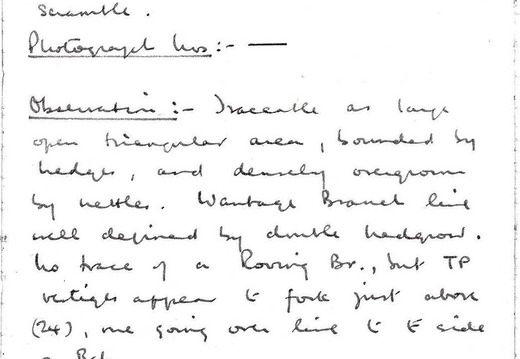 scramble.
Photograph Nos :- —
Observation :- Traceable as large
open triangular area, bounded by
hedges, and densely overgrown
by nettles. Wantage Branch line
well defined by double hedgrow.
No trace of a Roving Br., but TP
vestiges appear to fork just above
(24), one going over line to E side